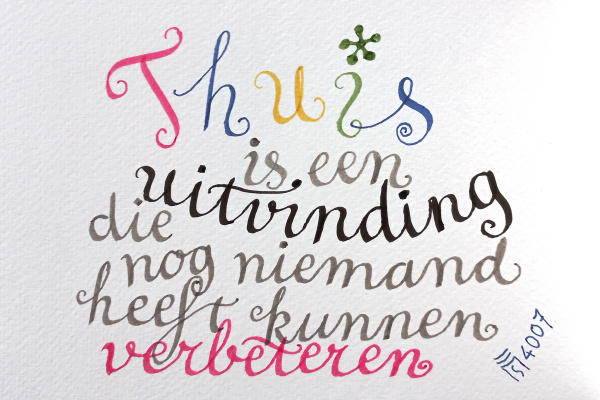 Thuis
is een
uitvinding
die
nog niemand
heeft kunnen
verbeteren
4007